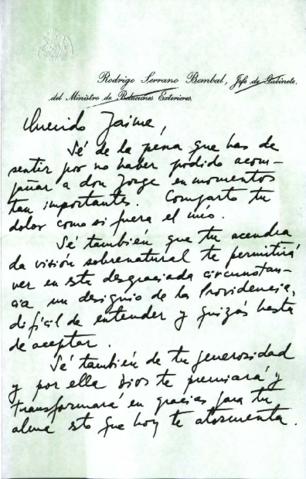 Rodrigo Serrano Bombal, Jefe de Gabinete
del Ministro de Relaciones Exteriores
Querido Jaime,
Sé de la pena que has de
sentir por no haber podido acom-
pañar a don Jorge en momentos
tan importantes. Comparto tu
dolor como si fuera el mío.
Sé también que tu acendra
da visión sobrenatural te permitirá
ver en esta desgraciada circunstan-
cia un designio de la Providencia,
difícil de entender y quizás hasta
de aceptar.
Sé también de tu generosidad
y por ella Dios te premiará y
transformará en gracias para tu
alma esto que hoy te atormenta.